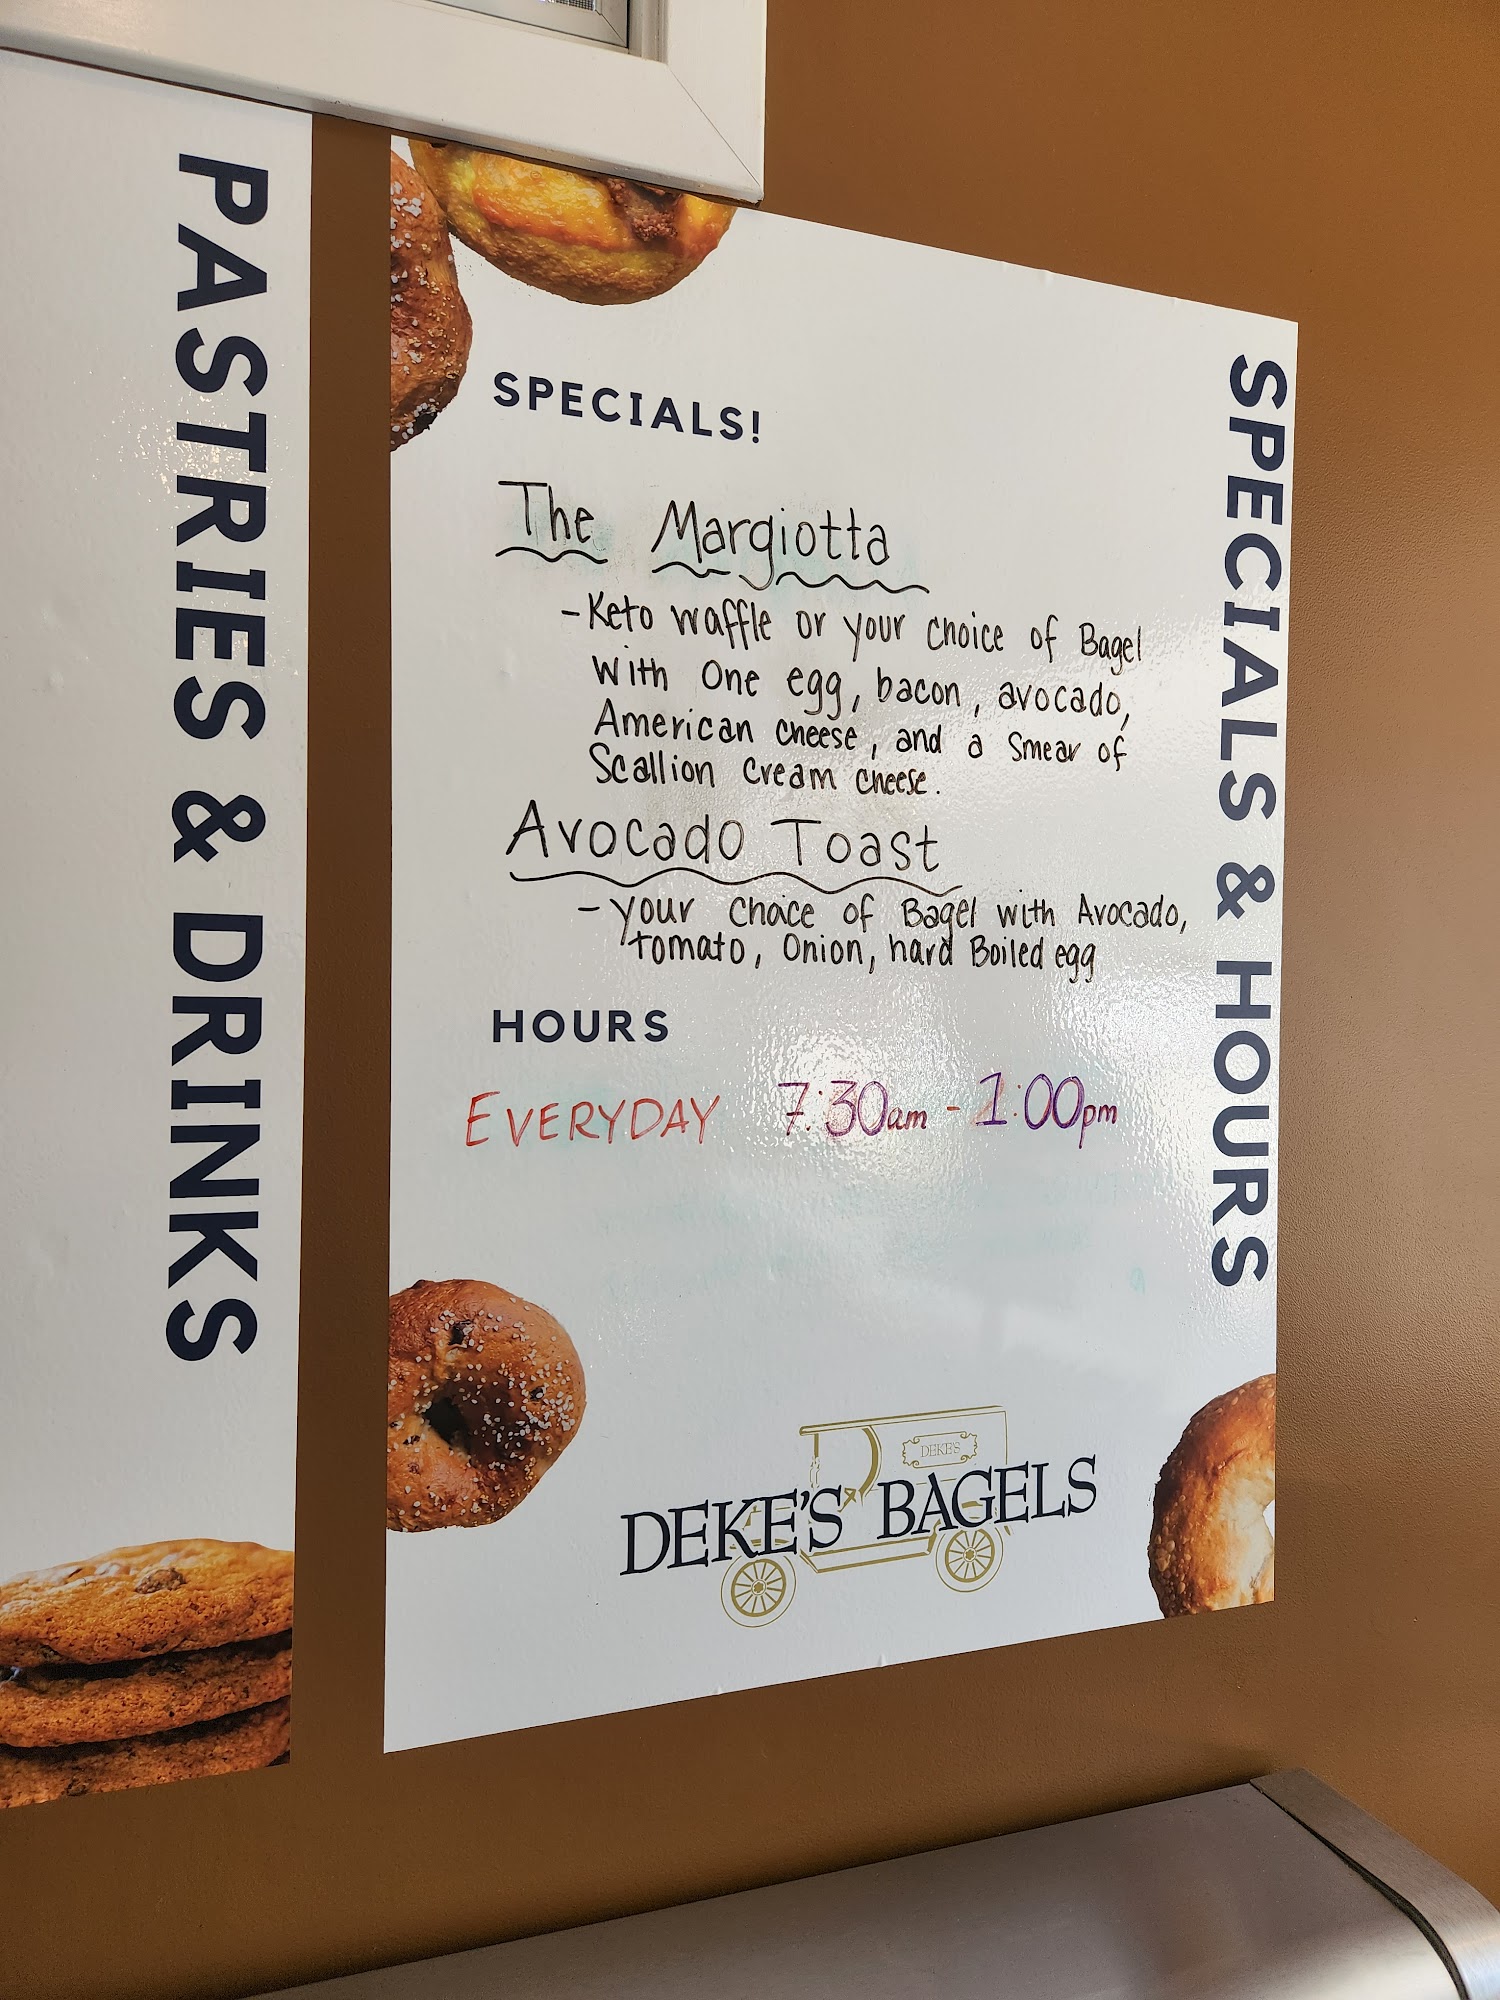 PASTRIES & DRINKS
SPECIALS & HOURS
SPECIALS!
The Margiotta
-Keto waffle or your choice of Bagel
with One egg, bacon, avocado,
American cheese, and a Smear of
Scallion Cream cheese.
Avocado Toast
-Your choice of Bagel with Avocado,
tomato, Onion, hard Boiled egg
HOURS
EVERYDAY 7:30am - 1:00pm
DEKE'S
DEKE'S BAGELS